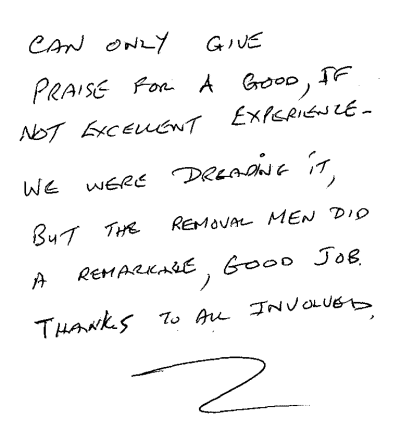 CAN ONLY GIVE
PRAISE FOR A GOOD, IF
NOT EXCELLENT EXPERIENCE -
WE WERE DREADING IT,
BUT THE REMOVAL MEN DID
A REMARKABLE, GOOD JOB.
THANKS TO ALL INVOLVED.